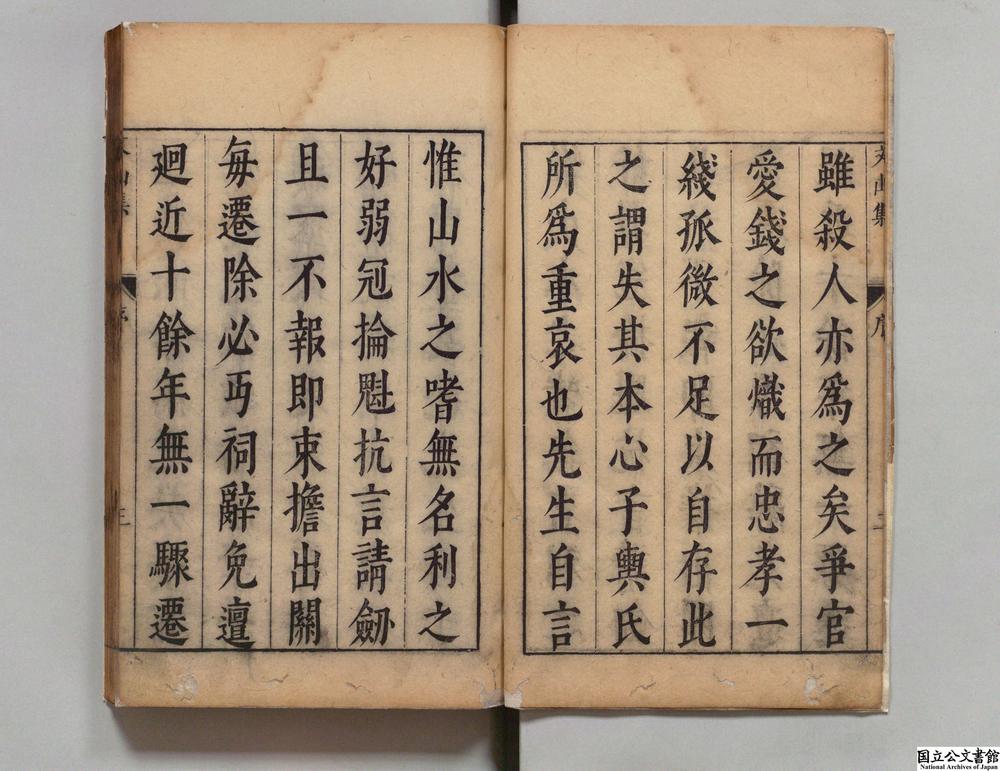 雖殺人亦爲之矣爭官
愛錢之欲熾而忠孝一
綫孤微不足以自存此
之謂失其本心子輿氏
所爲重哀也先生自言
惟山水之嗜無名利之
好弱冠掄魁抗言請劒
且一不報即束擔出關
每遷除必丐祠辭免邅
廻近十餘年無一驟遷
序
三
国立公文書館
National Archives of Japan